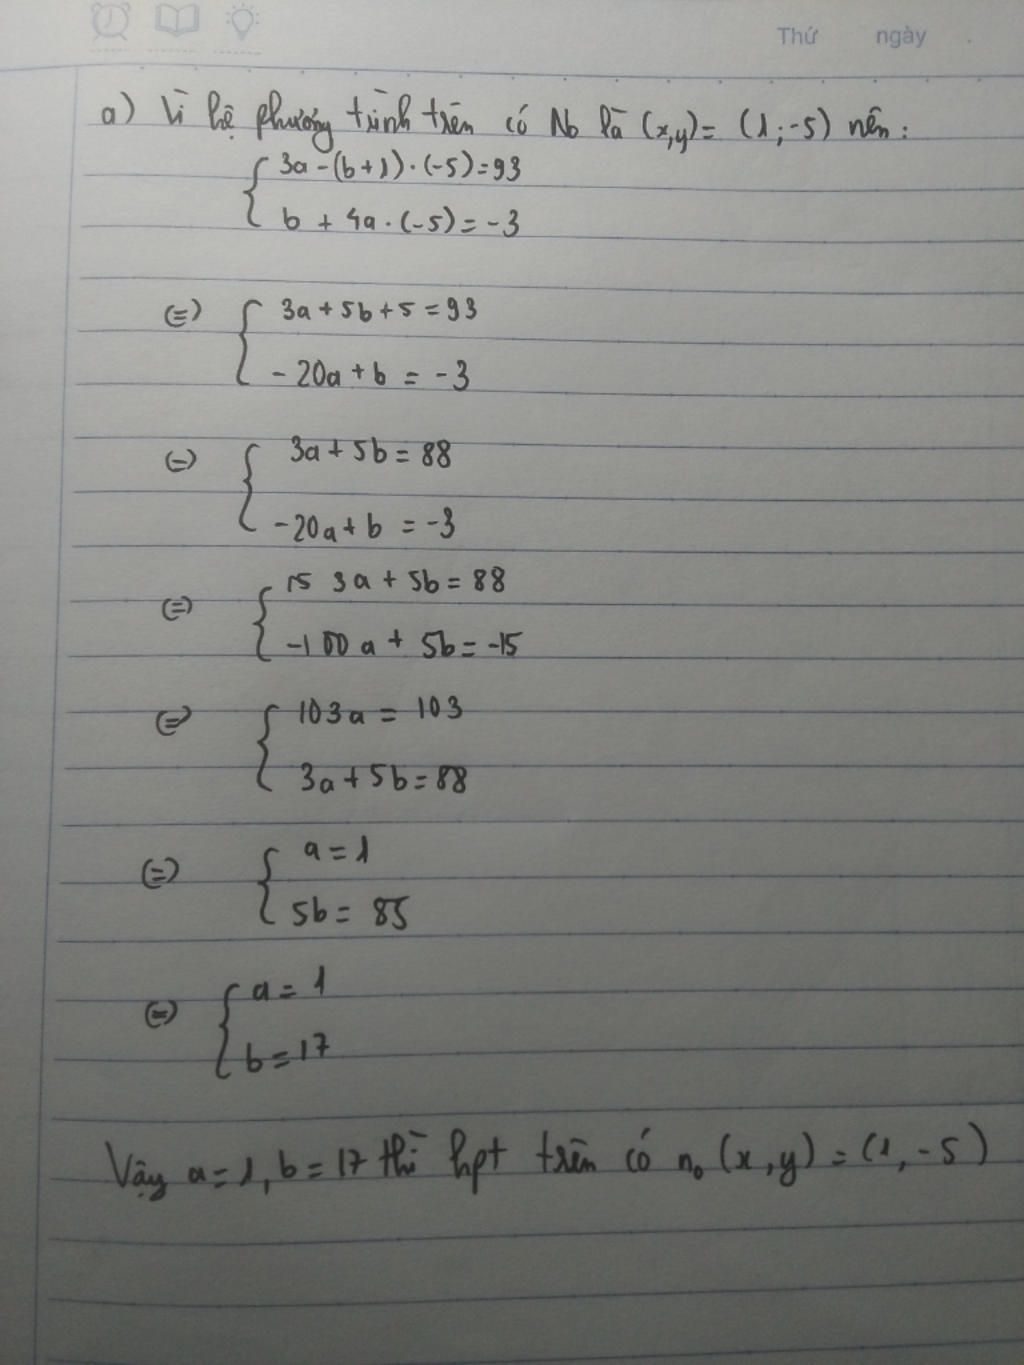 Thứ ngày .
a) Vì hệ phương trình trên có No là (x,y)= (1;-5) nên:
3a-(b+1)·(-5)=93
b + 4a·(-5)=-3
(=) 3a+5b+5=93
-20a+b = -3
(=) 3a+5b=88
-20a+b = -3
(=) 15 3a+5b=88
-100a+ 5b=-15
(=) 103a = 103
3a+5b=88
(=) a=1
5b= 85
(=) a= 1
b=17
Vậy a=1, b=17 thì hpt trên có no (x,y)=(1,-5)